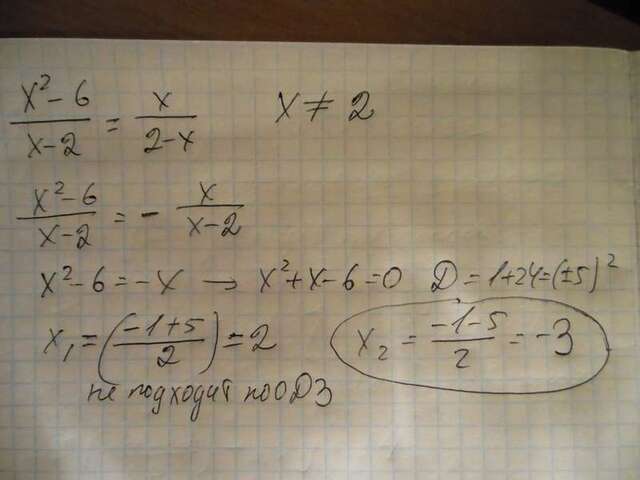 (x²-6)/(x-2) = x/(2-x)   x ≠ 2
(x²-6)/(x-2) = - x/(x-2)
x²-6=-x → x²+x-6=0 D=1+24=(±5)²
x₁=((-1+5)/2)=2   x₂=(-1-5)/2=-3
не подходит по ОДЗ